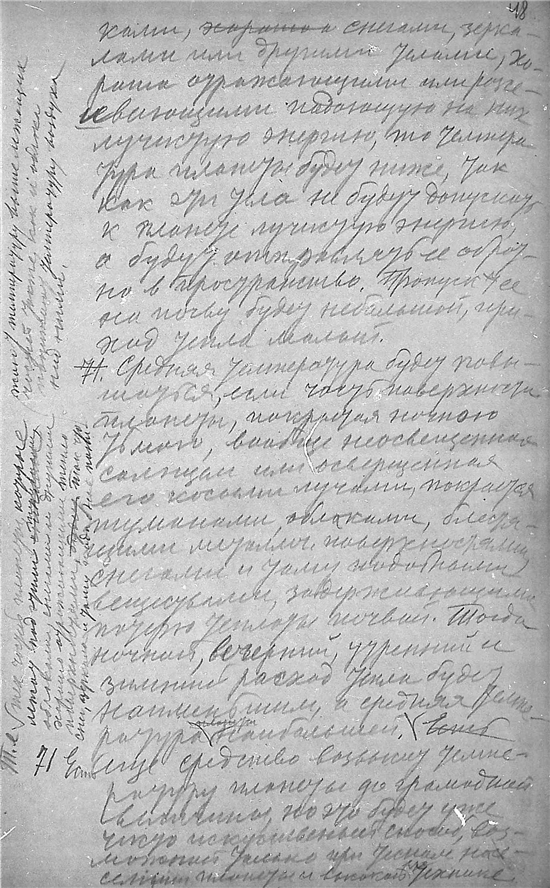 48
ками, хорошо а снегами, зерка-
лами или другими телами, хо-
рошо отражающими или рассе-
ивающими падающую на них
лучистую энергию, то темпера-
тура планеты будет ниже, так
как эти тела не будут допускать
к планете лучистую энергию,
а будут отправлять ее обрат-
но в пространство. Пропуск ее
на почву будет небольшой, при-
ход тепла малый.
71. Средняя температура будет повы-
шаться, если часть поверхности
планеты, покрытая ночною
тьмою, вообще неосвещенная
солнцем или освещенная
его косыми лучами, покроется
туманами, облаками, блестя-
щими металлич. поверхностями,
снегами и тому подобными
веществами, задерживающими
потерю теплоты почвой. Тогда
ночной, вечерний, утренний и
зимний расход тепла будет
наименьшим, а средняя темпе-
ратура планеты наибольшей. Есть
71 Есть еще средство возвысить темпе-
ратуру планеты до громадной
величины, но это будет уже
чисто искусственный способ, воз-
можный только при тесном на-
селении планеты и высокой технике
Т.е. те части планеты, которые
лежат под этими
облаками, снегами и другими
хорошо отражающими тепло
поверхностями,
температуру
почвы
температуру воздуха
над ними.